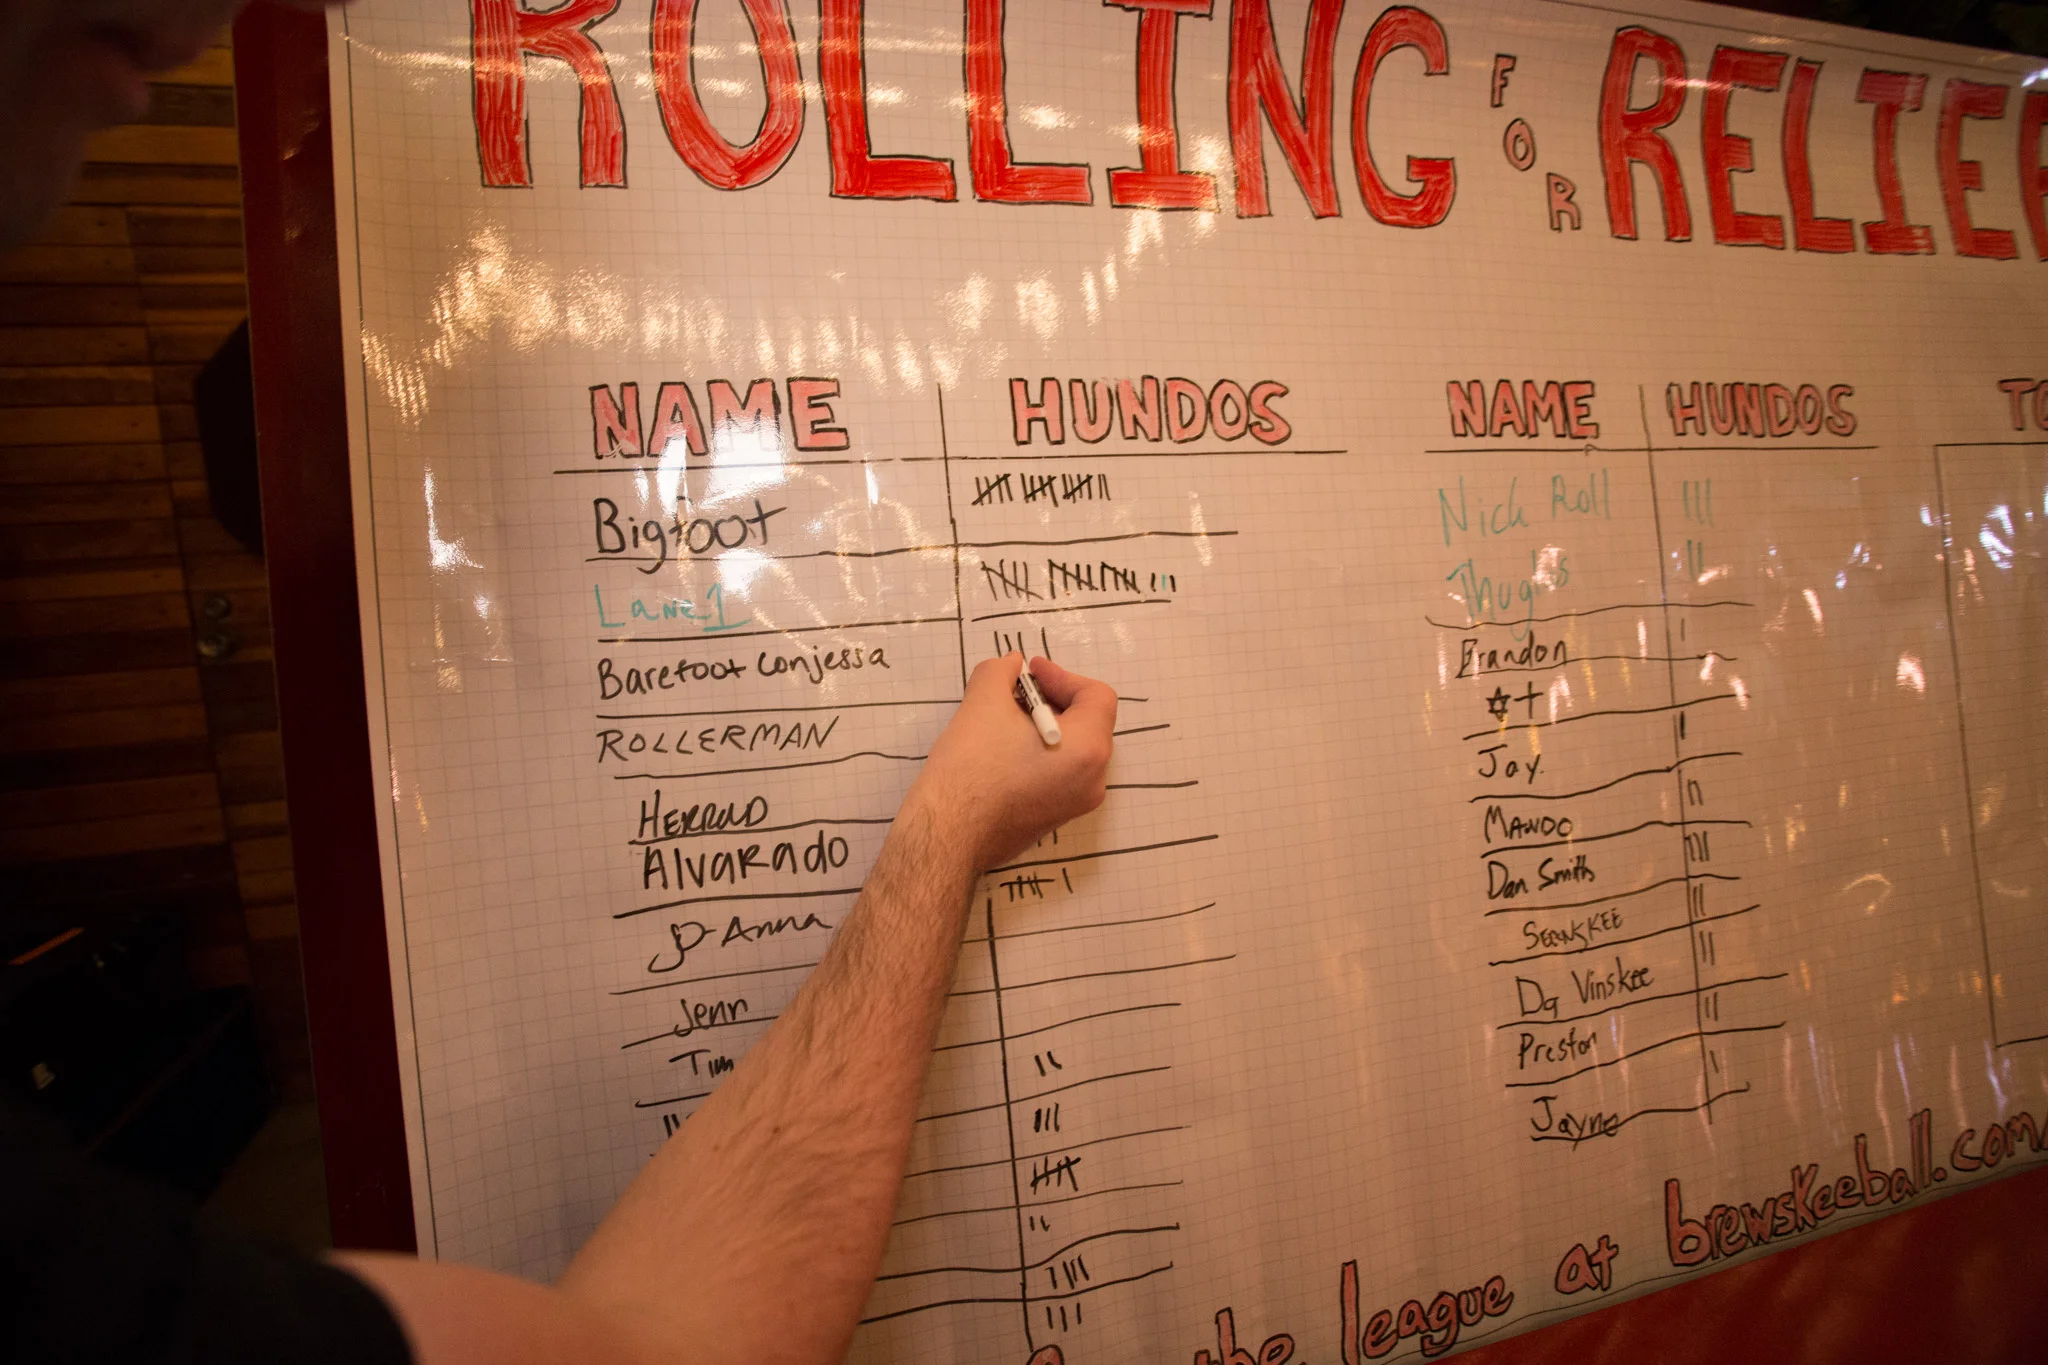 ROLLING FOR RELIEF
NAME HUNDOS
Bigfoot
Lane 1
Barefoot conjessa
ROLLERMAN
HERROLD
Alvarado
JO-Anna
Jenn
Tim
NAME HUNDOS
Nick Roll
Thughs
Brandon
✡✝
Jay.
MANDO
Dan Smith
SEEUNGKEE
Da Vinskee
Preston
Jayne
the league at brewskeeball.com